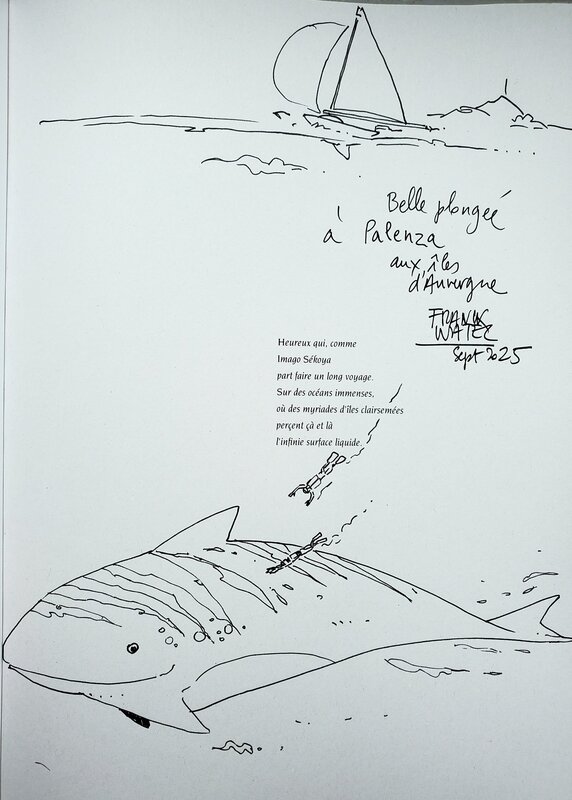 Belle plongée
à Palenza
aux îles
d'Auvergne
FRANCK
WATEL
Sept 2025
Heureux qui, comme
Imago Sékoya
part faire un long voyage.
Sur des océans immenses,
où des myriades d'îles clairsemées
perçent çà et là
l'infinie surface liquide.